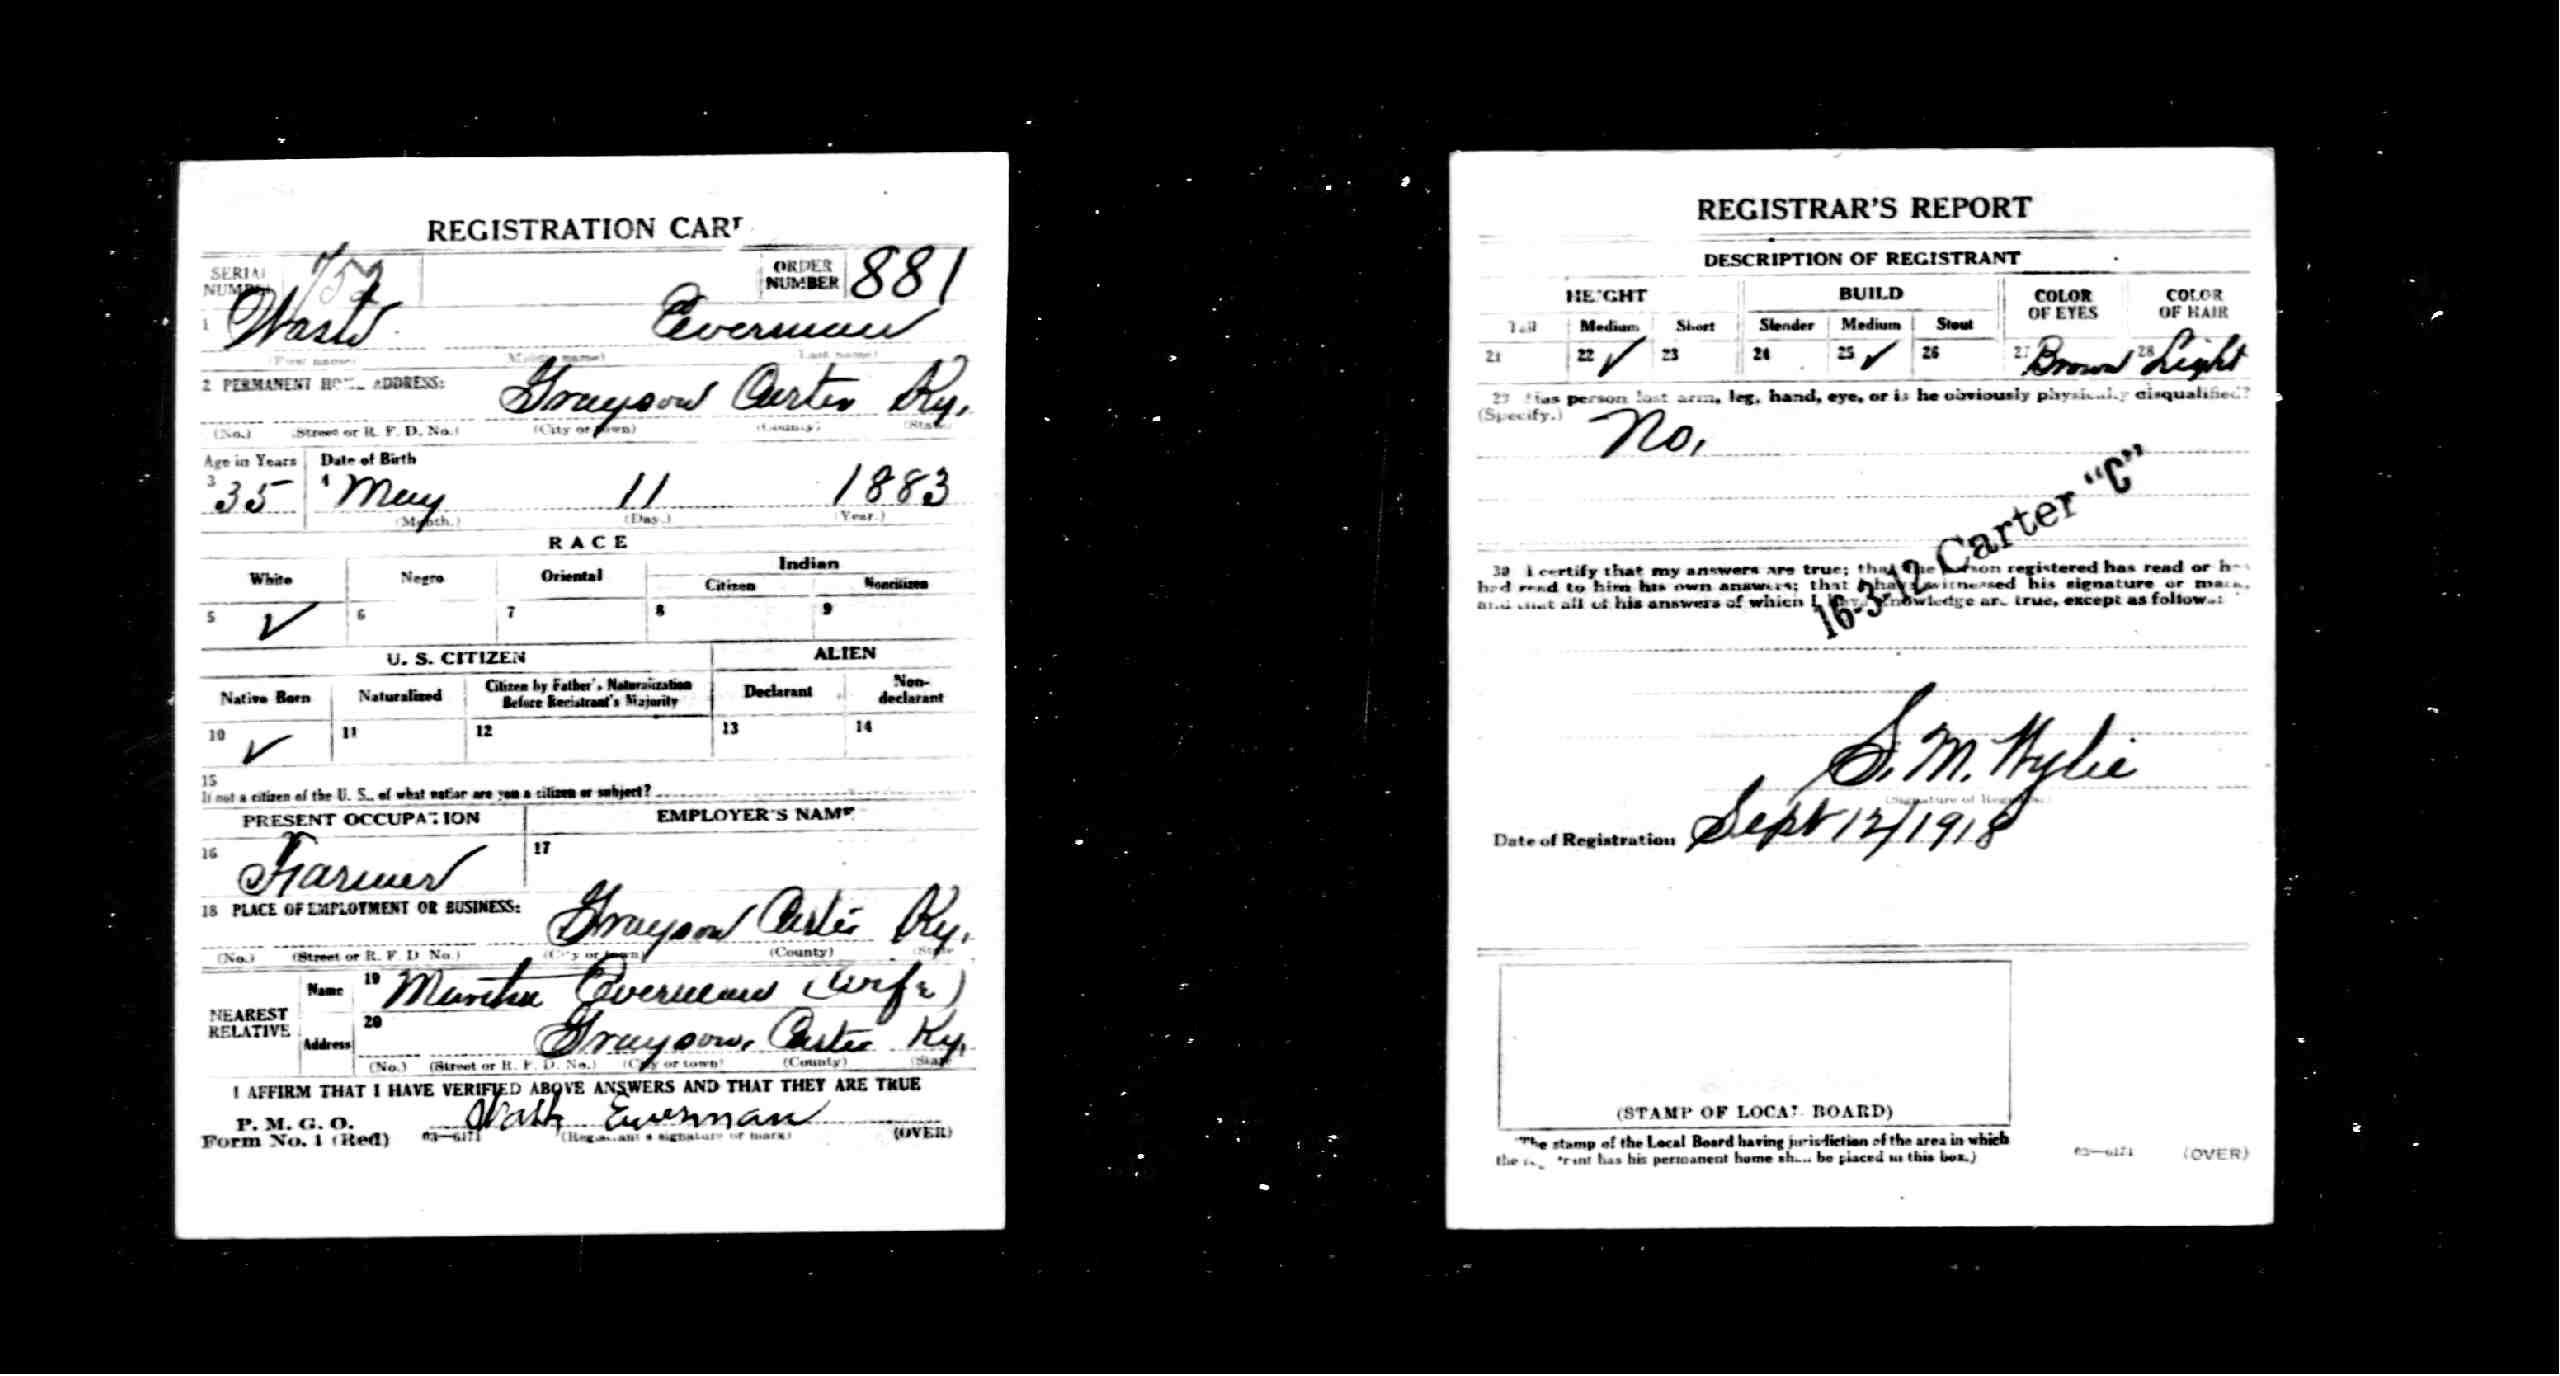 REGISTRATION CAR
SERIAL NUMBER 752 ORDER NUMBER 881
1 Wash Everman
(First name) (Middle name) (Last name)
2 PERMANENT HOME ADDRESS:
Grayson Carter Ky.
(No.) (Street or R. F. D. No.) (City or town) (County) (State)
Age in Years Date of Birth
3 35 4 May 11 1883
(Month.) (Day.) (Year.)
RACE
White Negro Oriental Indian
Citizen Noncitizen
5 ✓ 6 7 8 9
U. S. CITIZEN ALIEN
Native Born Naturalized Citizen by Father's Naturalization Before Registrant's Majority Declarant Non-declarant
10 ✓ 11 12 13 14
15
If not a citizen of the U. S., of what nation are you a citizen or subject?
PRESENT OCCUPATION EMPLOYER'S NAME
16 Farmer 17
18 PLACE OF EMPLOYMENT OR BUSINESS:
Grayson Carter Ky.
(No.) (Street or R. F. D. No.) (City or town) (County) (State)
NEAREST RELATIVE
Name 19 Everman (wife)
Address 20 Grayson, Carter Ky.
(No.) (Street or R. F. D. No.) (City or town) (County) (State)
I AFFIRM THAT I HAVE VERIFIED ABOVE ANSWERS AND THAT THEY ARE TRUE
P. M. G. O.
Form No. 1 (Red) 03—6171 Wash Everman (OVER)
(Registrant's signature or mark)
REGISTRAR'S REPORT
DESCRIPTION OF REGISTRANT
HEIGHT BUILD COLOR OF EYES COLOR OF HAIR
Tall Medium Short Slender Medium Stout
21 22 ✓ 23 24 25 ✓ 26 27 Brown 28 Light
29 Has person lost arm, leg, hand, eye, or is he obviously physically disqualified?
(Specify.) No,
16-3-12 Carter "C"
30 I certify that my answers are true; that the person registered has read or has
had read to him his own answers; that I have witnessed his signature or mark,
and that all of his answers of which I have knowledge are true, except as follows:
S. M. Wylie
(Signature of Registrar)
Date of Registration Sept 12/1918
(STAMP OF LOCAL BOARD)
(The stamp of the Local Board having jurisdiction of the area in which
the registrant has his permanent home shall be placed in this box.)
03—6171 (OVER)